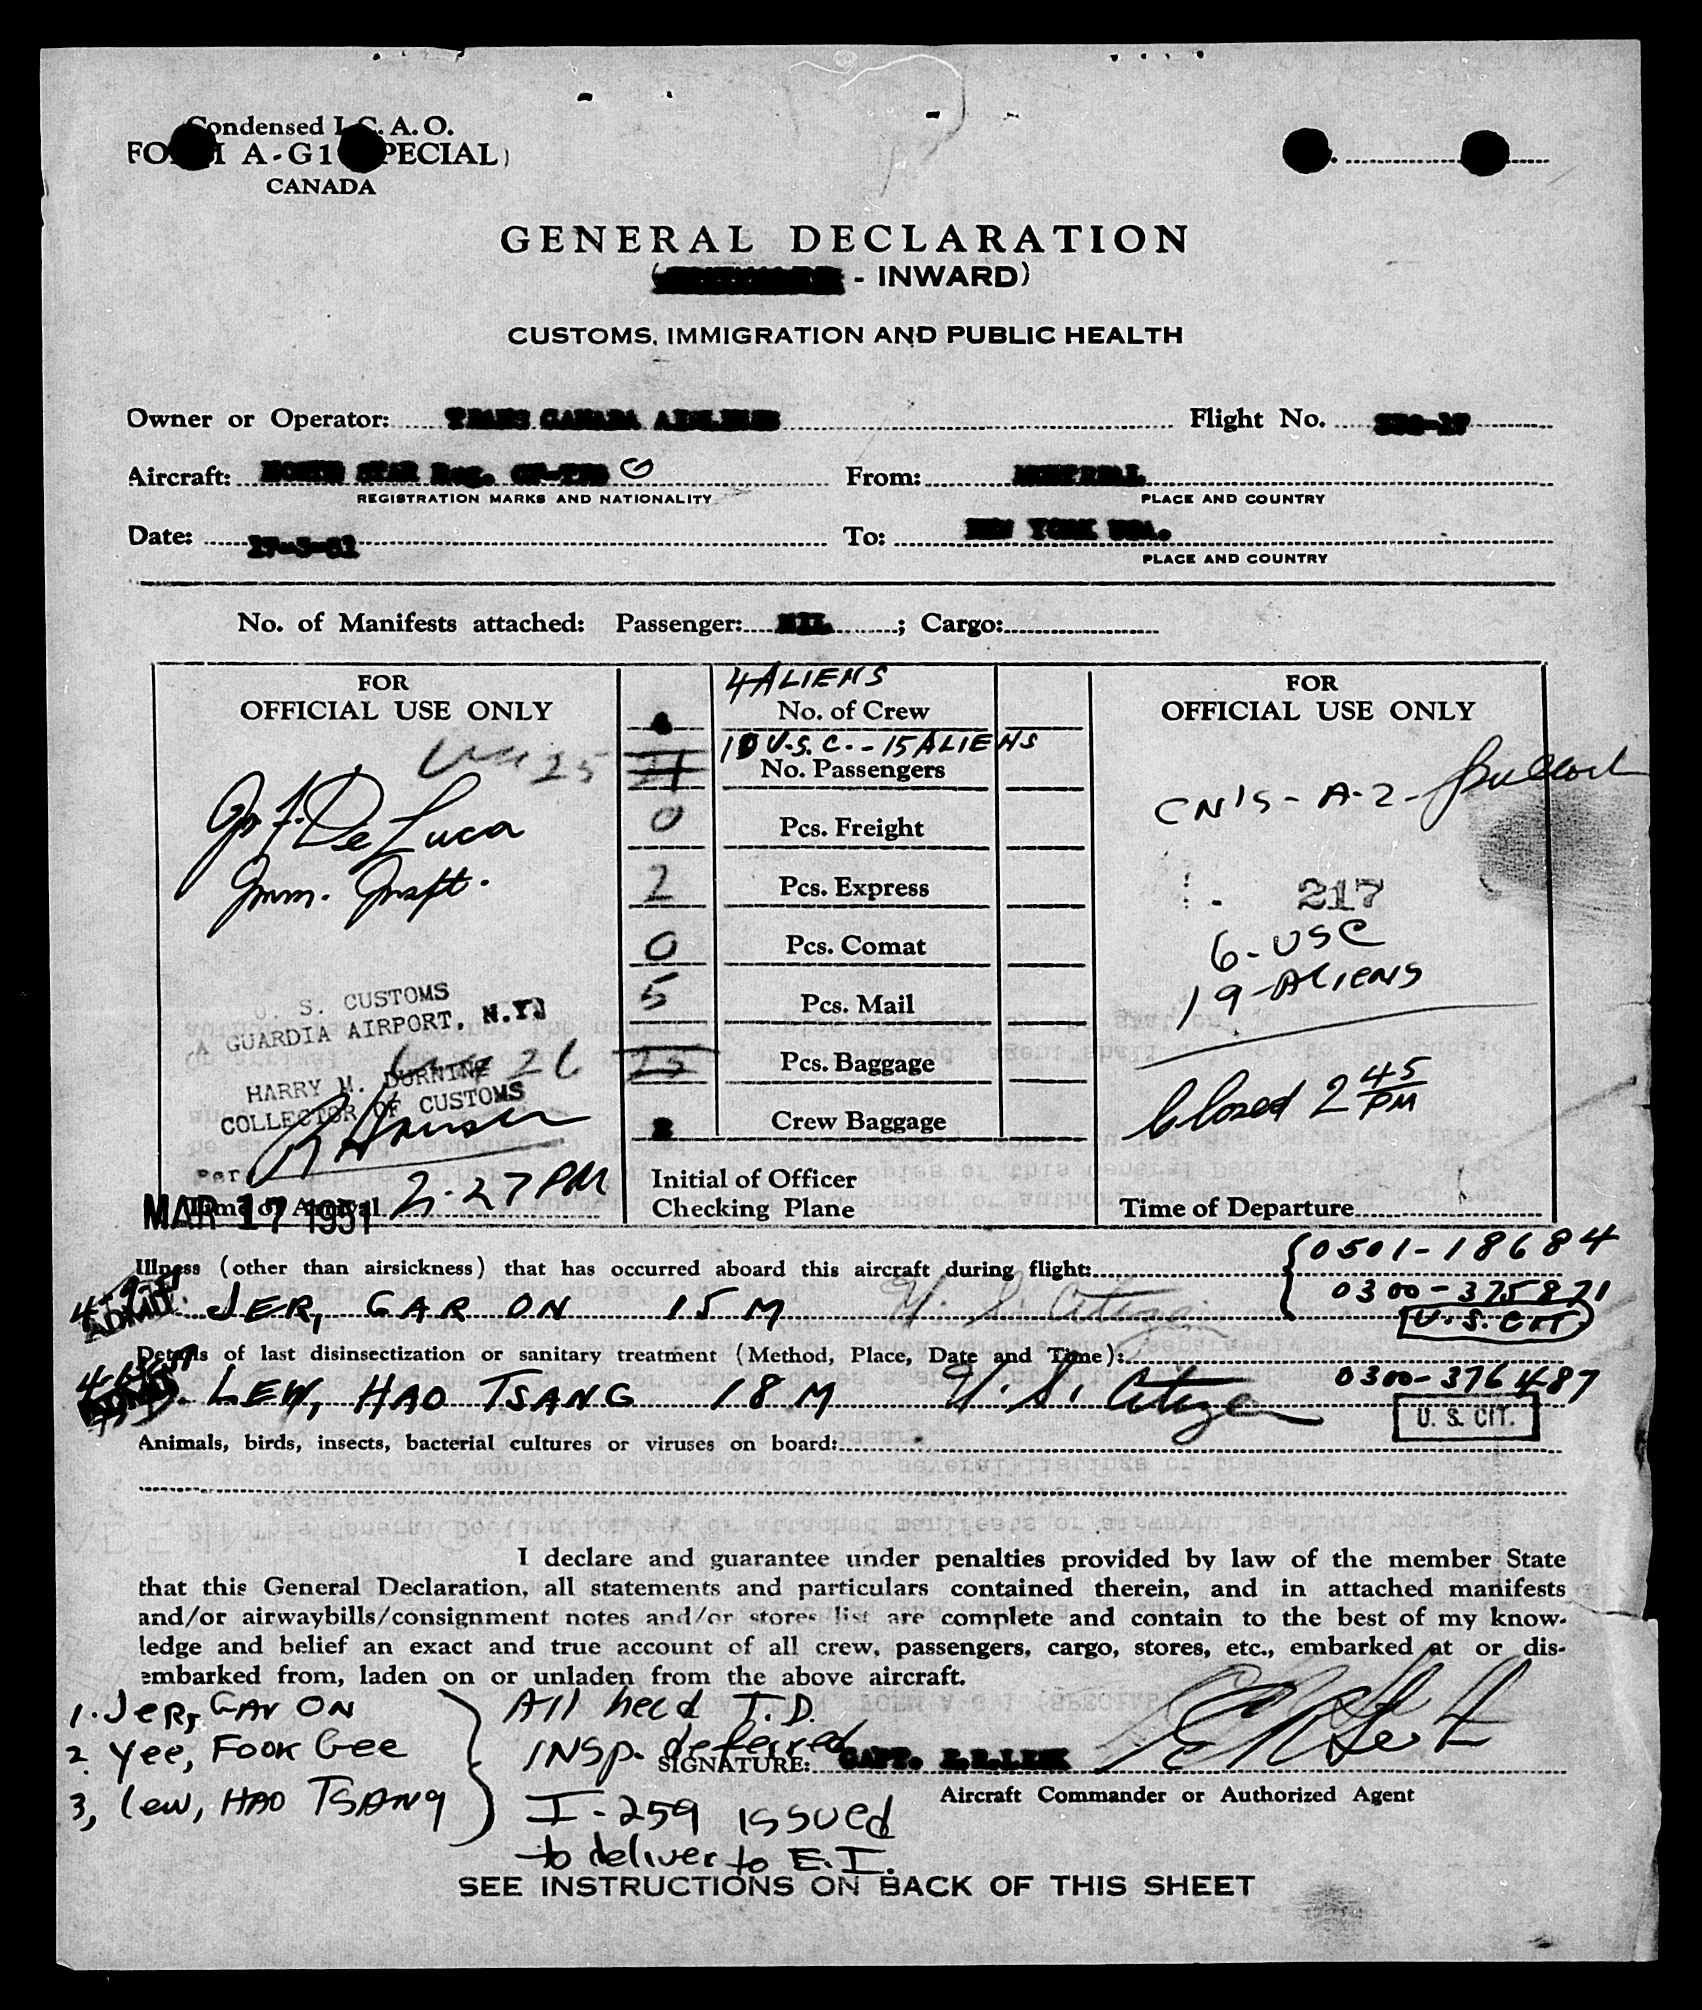 Condensed I.C.A.O.
A-G1 PECIAL)
CANADA
GENERAL DECLARATION
- INWARD)
CUSTOMS, IMMIGRATION AND PUBLIC HEALTH
Owner or Operator: TRANS CANADA AIRLINES Flight No.
Aircraft: NORTH STAR Reg. From: MONTREAL
REGISTRATION MARKS AND NATIONALITY PLACE AND COUNTRY
Date: 17-3-51 To: NEW YORK USA.
PLACE AND COUNTRY
No. of Manifests attached: Passenger: NIL ; Cargo:
FOR OFFICIAL USE ONLY
25
De Luca
Imm. Inspt.
U. S. CUSTOMS
GUARDIA AIRPORT, N.Y.
26
HARRY M. DURNING
COLLECTOR OF CUSTOMS
Per
MAR 17 1951
Time of Arrival 2.27 PM
4 ALIENS
No. of Crew
10 U.S.C. - 15 ALIENS
No. Passengers
0 Pcs. Freight
2 Pcs. Express
0 Pcs. Comat
5 Pcs. Mail
25 Pcs. Baggage
Crew Baggage
Initial of Officer
Checking Plane
FOR OFFICIAL USE ONLY
CN'S - A-2 - Bullock
217
6 - USC
19 - ALIENS
Closed 2 45 PM
Time of Departure
0501-18684
Illness (other than airsickness) that has occurred aboard this aircraft during flight:
0300-375871
ADMIT. JER, GAR ON 15 M U. S. Citizen U. S. CIT
Details of last disinsectization or sanitary treatment (Method, Place, Date and Time):
ADMIT LEW, HAO TSANG 18 M U. S. Citizen 0300-376487
U. S. CIT.
Animals, birds, insects, bacterial cultures or viruses on board:
I declare and guarantee under penalties provided by law of the member State
that this General Declaration, all statements and particulars contained therein, and in attached manifests
and/or airwaybills/consignment notes and/or stores list are complete and contain to the best of my know-
ledge and belief an exact and true account of all crew, passengers, cargo, stores, etc., embarked at or dis-
embarked from, laden on or unladen from the above aircraft.
1. Jer, Gar ON All held T.D.
2 Yee, Fook Gee INSP. deferred
SIGNATURE: CAPT.
3, Lew, HAO TSANG I-259 issued
Aircraft Commander or Authorized Agent
to deliver to E.I.
SEE INSTRUCTIONS ON BACK OF THIS SHEET